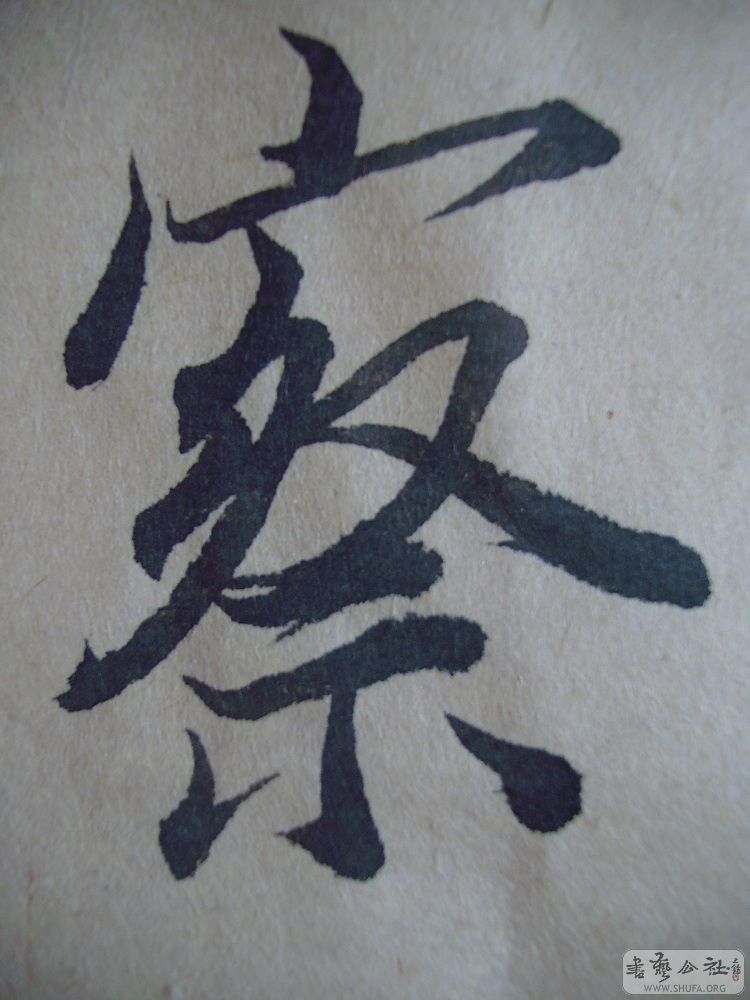 察
書藝公社
WWW.SHUFA.ORG